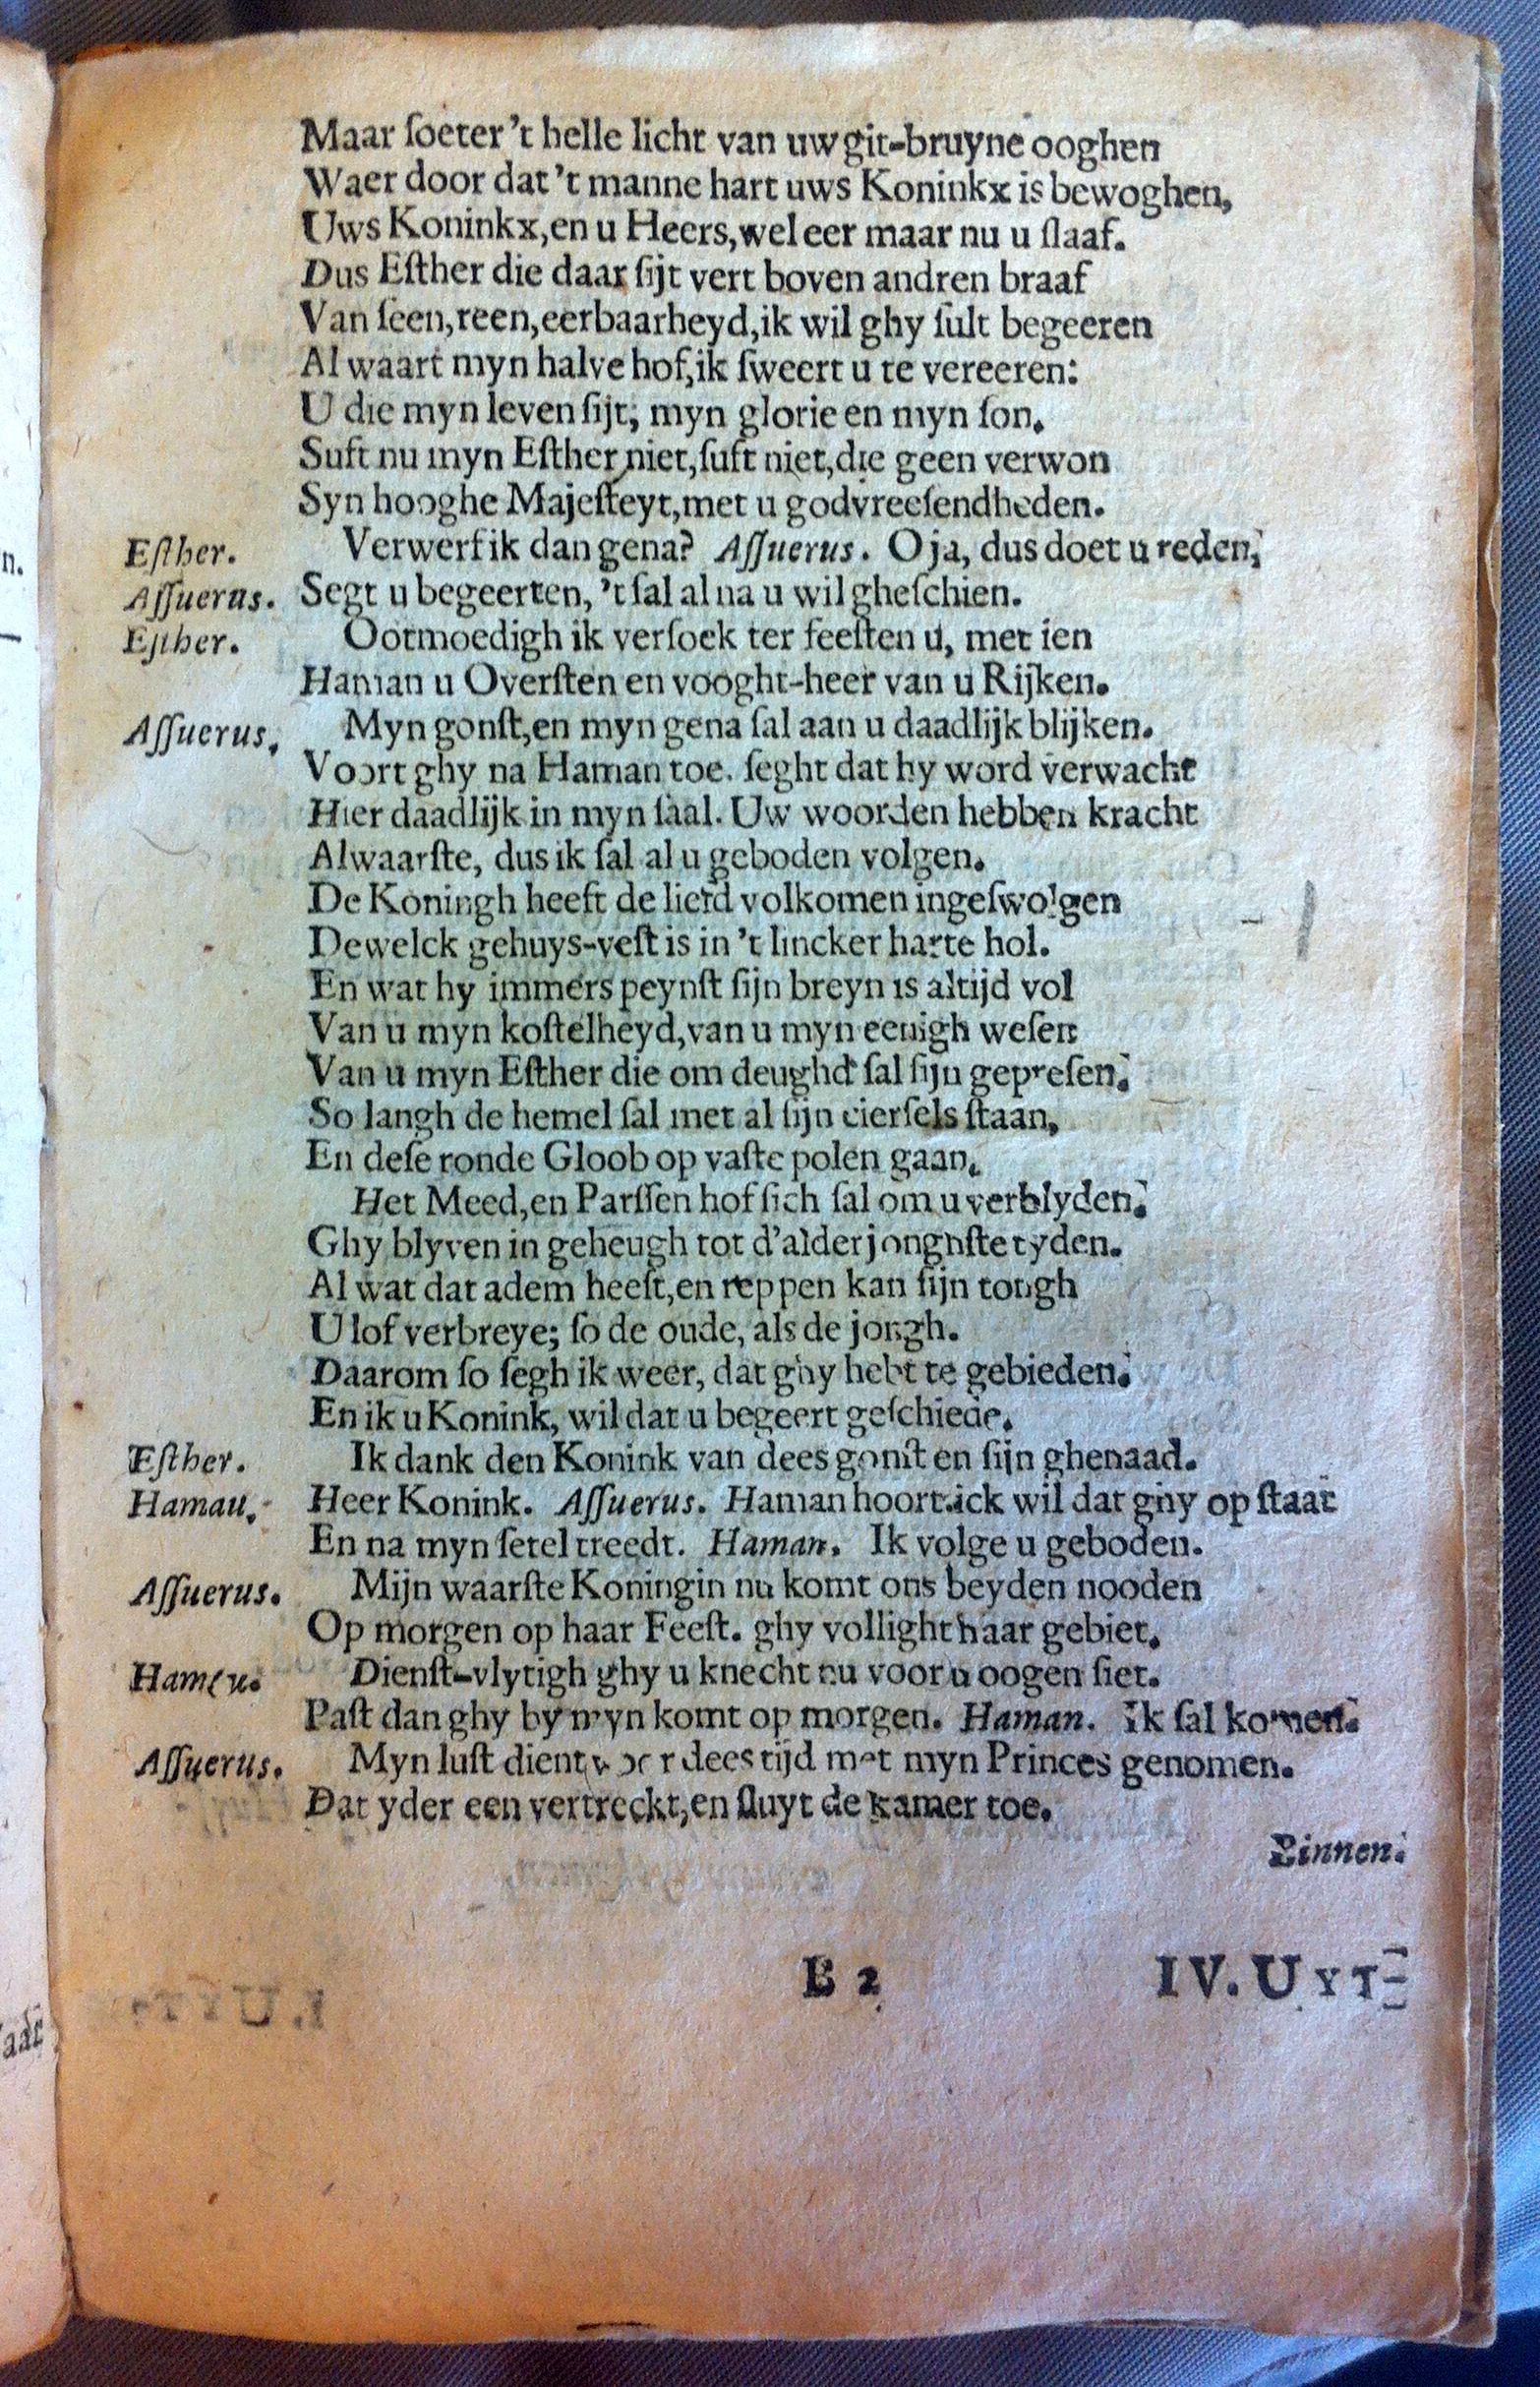 Maar ſoeter 't helle licht van uw git-bruyne ooghen
Waer door dat 't manne hart uws Koninkx is bewoghen,
Uws Koninkx, en u Heers, wel eer maar nu u ſlaaf.
Dus Eſther die daar ſijt vert boven andren braaf
Van ſeen, reen, eerbaarheyd, ik wil ghy ſult begeeren
Al waart myn halve hof, ik ſweert u te vereeren:
U die myn leven ſijt, myn glorie en myn ſon.
Suft nu myn Eſther niet, ſuft niet, die geen verwon
Syn hooghe Majeſteyt, met u godvreeſendheden.
Eſther. Verwerf ik dan gena? Aſſuerus. O ja, dus doet u reden,
Aſſuerus. Segt u begeerten, 't ſal al na u wil gheſchien.
Eſther. Ootmoedigh ik verſoek ter feeſten u, met ien
Haman u Overſten en vooght-heer van u Rijken.
Aſſuerus. Myn gonſt, en myn gena ſal aan u daadlijk blijken.
Voort ghy na Haman toe. ſeght dat hy word verwacht
Hier daadlijk in myn ſaal. Uw woorden hebben kracht
Alwaarſte, dus ik ſal al u geboden volgen.
De Koningh heeft de liefd volkomen ingeſwolgen
Dewelck gehuys-veſt is in 't lincker harte hol.
En wat hy immers peynſt ſijn breyn is altijd vol
Van u myn koſtelheyd, van u myn eenigh weſen
Van u myn Eſther die om deughd ſal ſijn gepreſen.
So langh de hemel ſal met al ſijn cierſels ſtaan,
En deſe ronde Gloob op vaſte polen gaan.
Het Meed, en Parſſen hof ſich ſal om u verblyden.
Ghy blyven in geheugh tot d'alder jongnſte tyden.
Al wat dat adem heeft, en reppen kan ſijn tongh
U lof verbreye; ſo de oude, als de jongh.
Daarom ſo ſegh ik weer, dat ghy hebt te gebieden.
En ik u Konink, wil dat u begeert geſchiede.
Eſther. Ik dank den Konink van dees gonſt en ſijn ghenaad.
Haman. Heer Konink. Aſſuerus. Haman hoort. ick wil dat ghy op ſtaat
En na myn ſetel treedt. Haman. Ik volge u geboden.
Aſſuerus. Mijn waarſte Koningin nu komt ons beyden nooden
Op morgen op haar Feeſt. ghy vollight haar gebiet.
Haman. Dienſt-vlytigh ghy u knecht nu voor u oogen ſiet.
Paſt dan ghy by myn komt op morgen. Haman. Ik ſal komen.
Aſſuerus. Myn luſt dient voor dees tijd met myn Princes genomen.
Dat yder een vertreckt, en ſluyt de kamer toe.
Binnen.
B 2 IV. UYT-